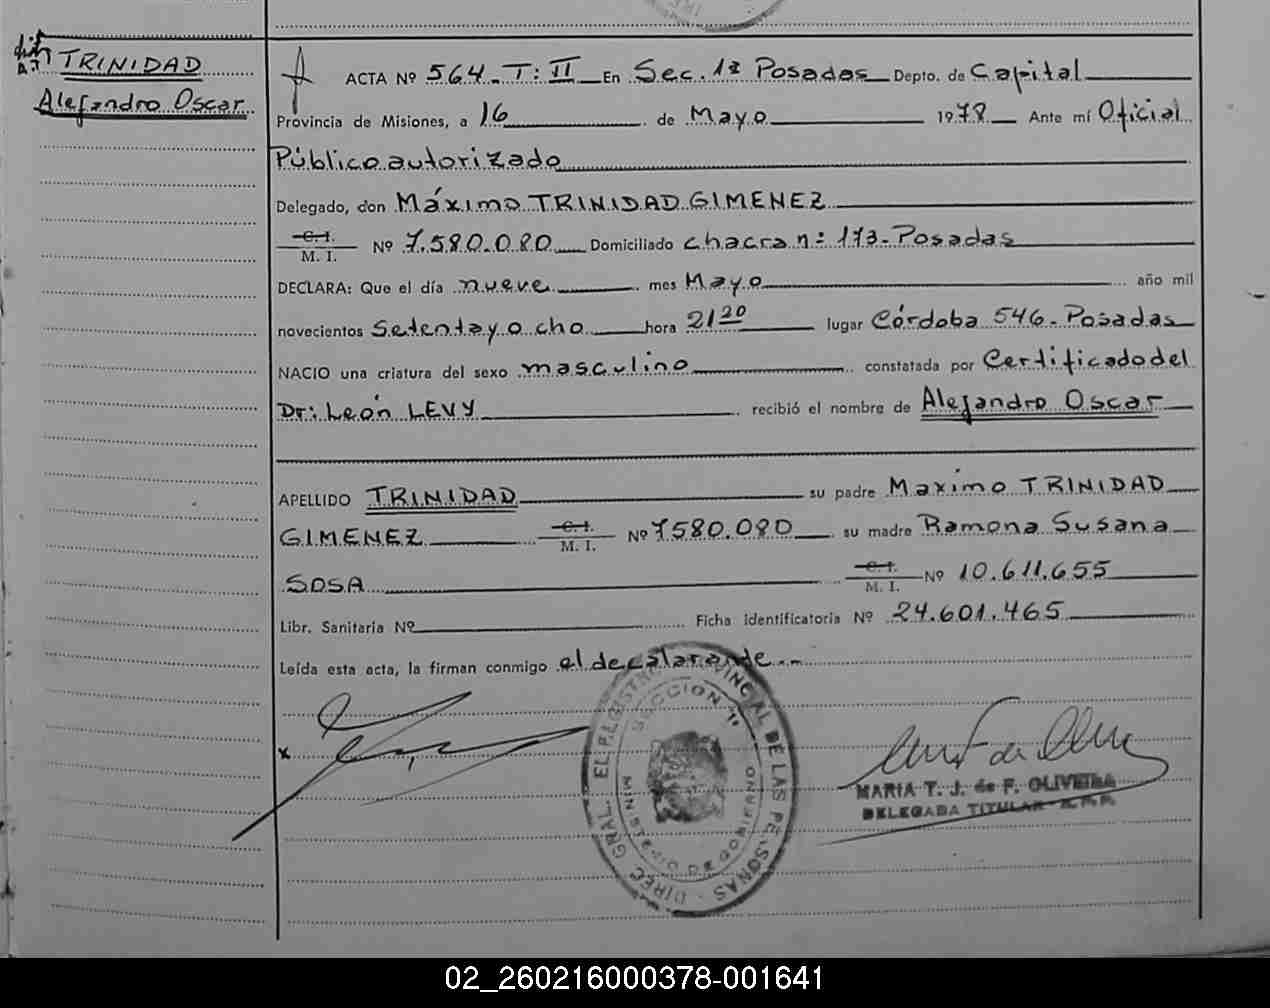 TRINIDAD
Alejandro Oscar
ACTA Nº 564. T: II En Sec. 1ª Posadas Depto. de Capital
Provincia de Misiones, a 16 de Mayo 1978 Ante mí Oficial
Público autorizado
Delegado, don Máximo TRINIDAD GIMENEZ
C. I.
M. I. Nº 7.580.080 Domiciliado chacra nº 173. Posadas
DECLARA: Que el día nueve mes Mayo año mil
novecientos Setenta y ocho hora 21 20 lugar Córdoba 546. Posadas
NACIO una criatura del sexo masculino constatada por Certificado del
Dr: León LEVY recibió el nombre de Alejandro Oscar
APELLIDO TRINIDAD su padre Maximo TRINIDAD
GIMENEZ C. I. M. I. Nº 7580.080 su madre Ramona Susana
SOSA C. I. M. I. Nº 10.611.655
Libr. Sanitaria Nº Ficha identificatoria Nº 24.601.465
Leída esta acta, la firman conmigo el decalarande..
x
DIREC. GRAL. EL REGISTRO PROVINCIAL DE LAS PERSONAS
SECCION 1ª
MINISTERIO DE GOBIERNO
MARIA T. J. de F. OLIVEIRA
DELEGADA TITULAR
02_260216000378-001641